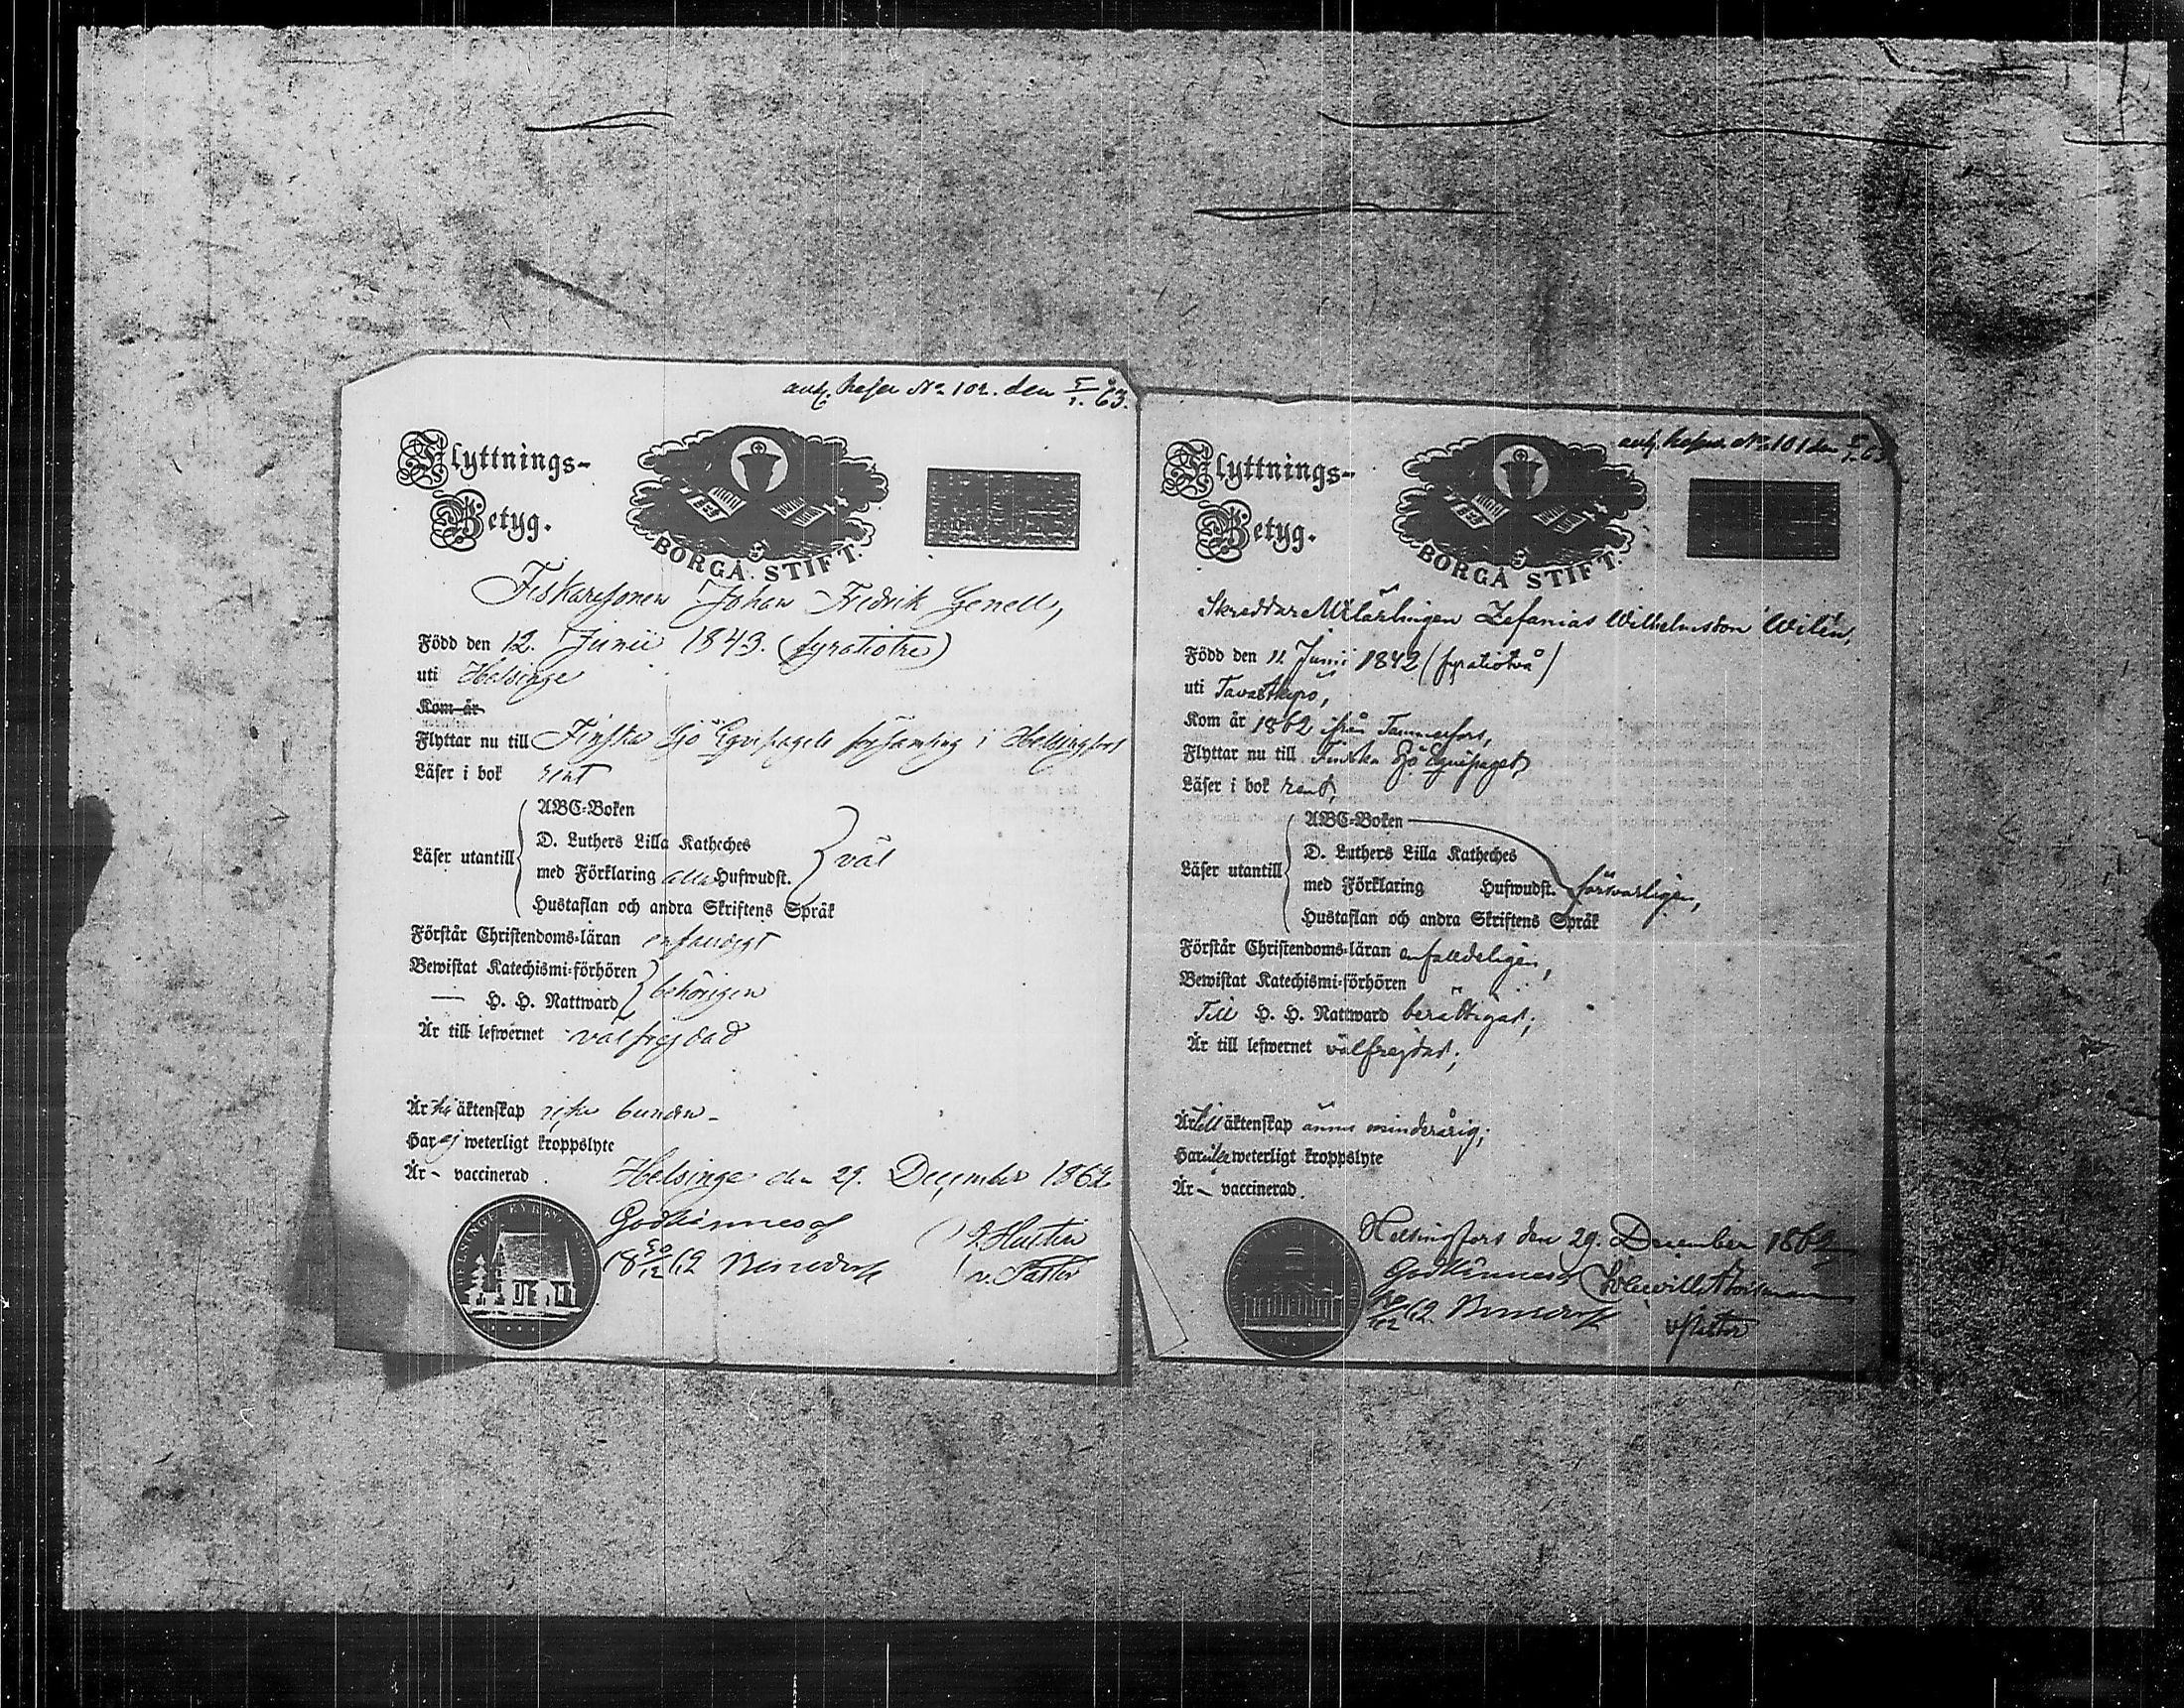 No 102. den 5/1. 63.
Flyttnings-
Betyg.
BORGÅ. STIFT.
Fiskaresonen Johan Fredrik Genell,
Född den 12. Junii 1843. (fyratiotre)
uti Helsinge
Kom år
Flyttar nu till Finska Sjö Equipagets församling i Helsingfors
Läser i bok rent
ABC-Boken
D. Luthers Lilla Katheches
Läser utantill väl
med Förklaring alla Hufwudst.
Hustaflan och andra Skriftens Språk
Förstår Christendoms-läran enfaldigt
Bewistat Katechismi-förhören
behörigen
— H. H. Nattward
Är till lefwernet välfrejdad
Är till äktenskap icke bunden
Har ej weterligt kroppslyte
Är – vaccinerad.
Helsinge den 29. December 1862
Godkännes af
18 30/12 62
v. Pastor
No 101 den 5/1. 63
Flyttnings-
Betyg.
BORGÅ STIFT.
Skreddare Mlärlingen Zefanias Wilhelmsson Wilén,
Född den 11 Junii 1842 (fyratiotvå)
uti Tavastkyro,
Kom år 1862 ifrån Tammerfors,
Flyttar nu till Finska Sjö Equipaget,
Läser i bok rent,
ABC-Boken
D. Luthers Lilla Katheches
Läser utantill
med Förklaring Hufwudst. försvarligen,
Hustaflan och andra Skriftens Språk
Förstår Christendoms-läran enfaldeligen,
Bewistat Katechismi-förhören
Till H. H. Nattward berättigad;
Är till lefwernet välfrejdad;
Är till äktenskap ännu minderårig;
Har weterligt kroppslyte
Är – vaccinerad.
Helsingfors den 29. December 1862
Godkännes
30/12 62.
v. Pastor